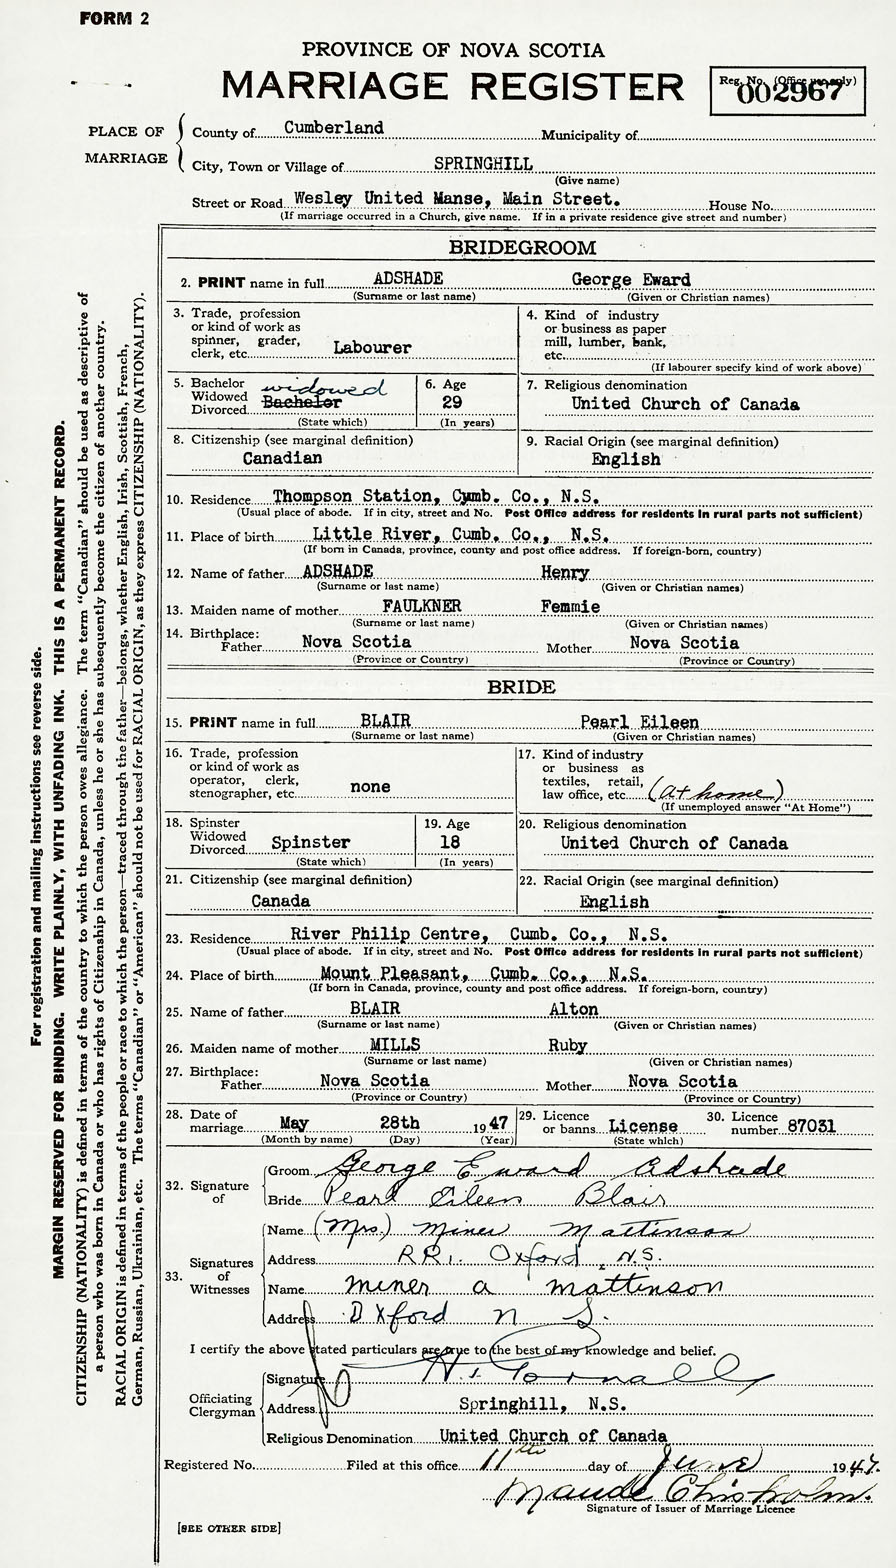 FORM 2
PROVINCE OF NOVA SCOTIA
MARRIAGE REGISTER
Reg. No. (Office use only)
002967
PLACE OF MARRIAGE
County of Cumberland Municipality of
City, Town or Village of SPRINGHILL
(Give name)
Street or Road Wesley United Manse, Main Street. House No.
(If marriage occurred in a Church, give name. If in a private residence give street and number)
BRIDEGROOM
2. PRINT name in full ADSHADE George Eward
(Surname or last name) (Given or Christian names)
3. Trade, profession
or kind of work as
spinner, grader,
clerk, etc. Labourer
4. Kind of industry
or business as paper
mill, lumber, bank,
etc.
(If labourer specify kind of work above)
5. Bachelor
Widowed
Divorced
widowed
Bachelor
(State which)
6. Age
29
(In years)
7. Religious denomination
United Church of Canada
8. Citizenship (see marginal definition)
Canadian
9. Racial Origin (see marginal definition)
English
10. Residence Thompson Station, Cymb. Co., N.S.
(Usual place of abode. If in city, street and No. Post Office address for residents in rural parts not sufficient)
11. Place of birth Little River, Cumb. Co., N.S.
(If born in Canada, province, county and post office address. If foreign-born, country)
12. Name of father ADSHADE Henry
(Surname or last name) (Given or Christian names)
13. Maiden name of mother FAULKNER Femmie
(Surname or last name) (Given or Christian names)
14. Birthplace:
Father Nova Scotia Mother Nova Scotia
(Province or Country) (Province or Country)
BRIDE
15. PRINT name in full BLAIR Pearl Eileen
(Surname or last name) (Given or Christian names)
16. Trade, profession
or kind of work as
operator, clerk,
stenographer, etc. none
17. Kind of industry
or business as
textiles, retail,
law office, etc. (at home)
(If unemployed answer "At Home")
18. Spinster
Widowed
Divorced Spinster
(State which)
19. Age
18
(In years)
20. Religious denomination
United Church of Canada
21. Citizenship (see marginal definition)
Canada
22. Racial Origin (see marginal definition)
English
23. Residence River Philip Centre, Cumb. Co., N.S.
(Usual place of abode. If in city, street and No. Post Office address for residents in rural parts not sufficient)
24. Place of birth Mount Pleasant, Cumb. Co., N.S.
(If born in Canada, province, county and post office address. If foreign-born, country)
25. Name of father BLAIR Alton
(Surname or last name) (Given or Christian names)
26. Maiden name of mother MILLS Ruby
(Surname or last name) (Given or Christian names)
27. Birthplace:
Father Nova Scotia Mother Nova Scotia
(Province or Country) (Province or Country)
28. Date of
marriage May 28th 1947
(Month by name) (Day) (Year)
29. Licence
or banns License
(State which)
30. Licence
number 87031
32. Signature of
Groom George Eward Adshade
Bride Pearl Eileen Blair
33. Signatures of Witnesses
Name (Mrs.) Miner Mattinson
Address RR1. Oxford, N.S.
Name Miner A Mattinson
Address Oxford N S.
I certify the above stated particulars are true to the best of my knowledge and belief.
Officiating Clergyman
Signature
Address Springhill, N.S.
Religious Denomination United Church of Canada
Registered No. Filed at this office 11th day of June 1947.
Maude Chisholm.
Signature of Issuer of Marriage Licence
[SEE OTHER SIDE]
For registration and mailing instructions see reverse side.
MARGIN RESERVED FOR BINDING. WRITE PLAINLY, WITH UNFADING INK. THIS IS A PERMANENT RECORD.
CITIZENSHIP (NATIONALITY) is defined in terms of the country to which the person owes allegiance. The term "Canadian" should be used as descriptive of
a person who was born in Canada or who has rights of Citizenship in Canada, unless he or she has subsequently become the citizen of another country.
RACIAL ORIGIN is defined in terms of the people or race to which the person—traced through the father—belongs, whether English, Irish, Scottish, French,
German, Russian, Ukrainian, etc. The terms "Canadian" or "American" should not be used for RACIAL ORIGIN, as they express CITIZENSHIP (NATIONALITY).